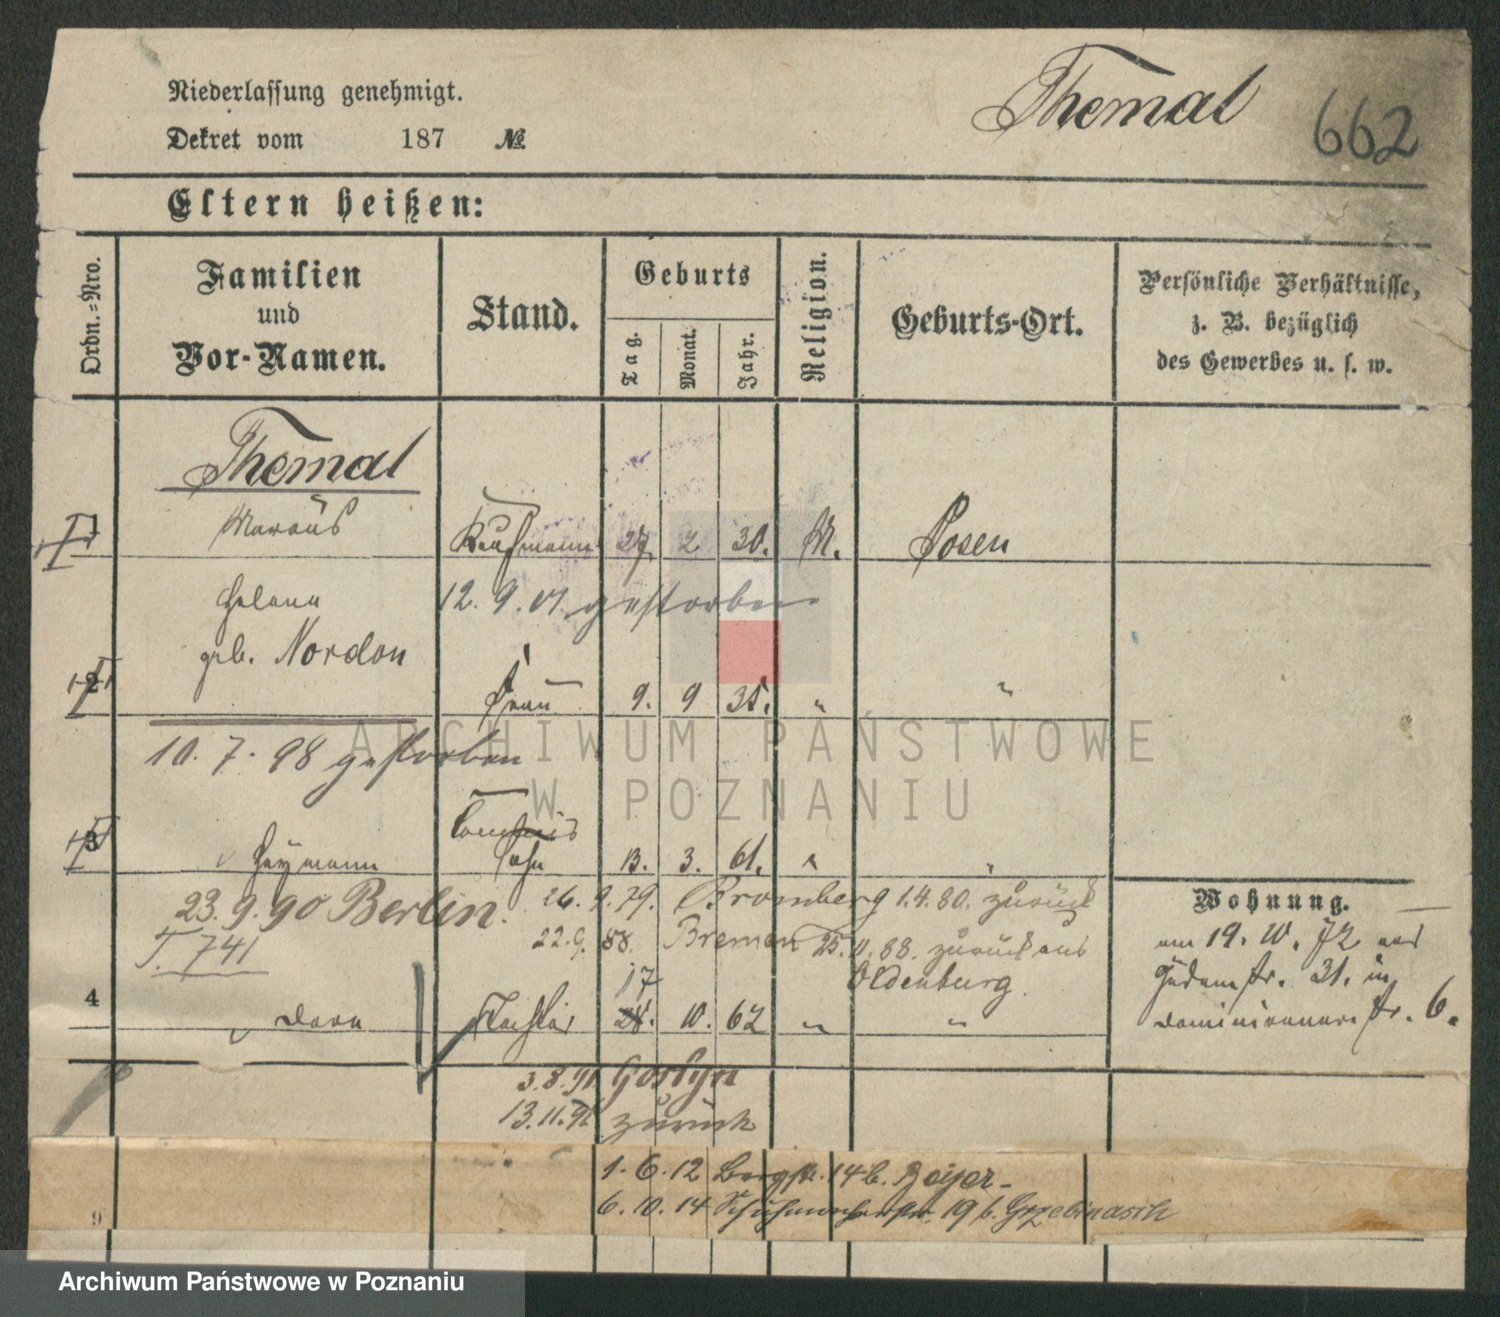 Niederlassung genehmigt.
Dekret vom 187 №
Themal 662
Eltern heißen:
Ordn.-Nro.
Familien
und
Vor-Namen.
Stand.
Geburts
Tag.
Monat.
Jahr.
Religion.
Geburts-Ort.
Persönliche Verhältnisse,
z. B. bezüglich
des Gewerbes u. s. w.
Themal
1 Marcus Kaufmann 27. 2 30. M. Posen
Helena 12. 9. 01. gestorben
geb. Nordon
2 Frau 9. 9 35. " "
10. 7. 98 gestorben
3 Heymann Sohn 13. 3. 61. " "
23. 9. 90 Berlin. 26. 9. 79. Bromberg 1.4.80. zurück
T. 741 22. 9. 88. Bremen 25. 11. 88. zurück aus
Oldenburg.
Wohnung.
am 19. 10. 72 aus
Judenstr. 31. in
Dominikanerstr. 6.
17
4 Dora Tochter 28. 10. 62 " "
3. 8. 91 Goslyn
13. 11. 91 zurück
1. 6. 12 Bergstr. 14 b. Beyer
6. 10. 14 19 b.
9
ARCHIWUM PAŃSTWOWE
W POZNANIU
Archiwum Państwowe w Poznaniu